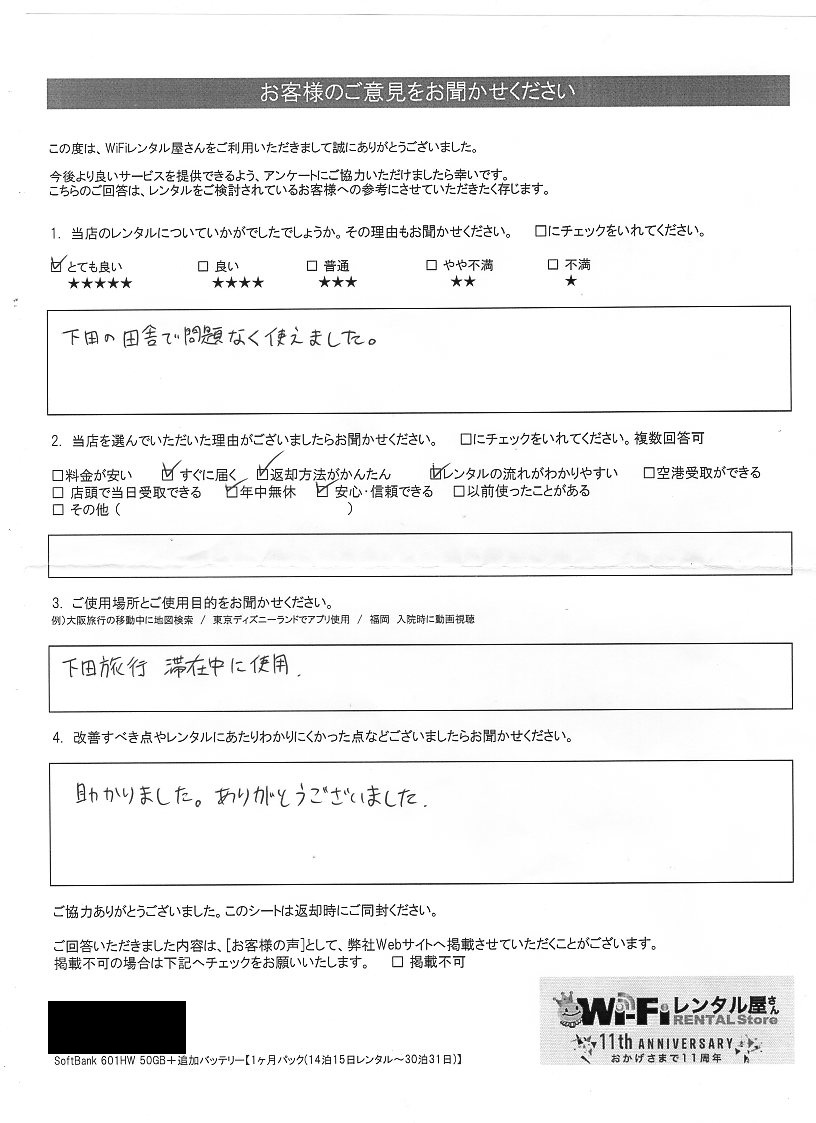 お客様のご意見をお聞かせください
この度は、WiFiレンタル屋さんをご利用いただきまして誠にありがとうございました。
今後より良いサービスを提供できるよう、アンケートにご協力いただけましたら幸いです。
こちらのご回答は、レンタルをご検討されているお客様への参考にさせていただきたく存じます。
1. 当店のレンタルについていかがでしたでしょうか。その理由もお聞かせください。 □にチェックをいれてください。
☑ とても良い □ 良い □ 普通 □ やや不満 □ 不満
★★★★★ ★★★★ ★★★ ★★ ★
下田の田舎で問題なく使えました。
2. 当店を選んでいただいた理由がございましたらお聞かせください。 □にチェックをいれてください。複数回答可
□料金が安い ☑すぐに届く ☑返却方法がかんたん ☑レンタルの流れがわかりやすい □空港受取ができる
□ 店頭で当日受取できる ☑年中無休 ☑ 安心・信頼できる □以前使ったことがある
□ その他 ( )
3. ご使用場所とご使用目的をお聞かせください。
例)大阪旅行の移動中に地図検索 / 東京ディズニーランドでアプリ使用 / 福岡 入院時に動画視聴
下田旅行 滞在中に使用.
4. 改善すべき点やレンタルにあたりわかりにくかった点などございましたらお聞かせください。
助かりました。ありがとうございました.
ご協力ありがとうございました。このシートは返却時にご同封ください。
ご回答いただきました内容は、[お客様の声]として、弊社Webサイトへ掲載させていただくことがございます。
掲載不可の場合は下記へチェックをお願いいたします。 □ 掲載不可
Wi-Fiレンタル屋さん
RENTAL Store
11th ANNIVERSARY
おかげさまで11周年
SoftBank 601HW 50GB+追加バッテリー【1ヶ月パック(14泊15日レンタル～30泊31日)】